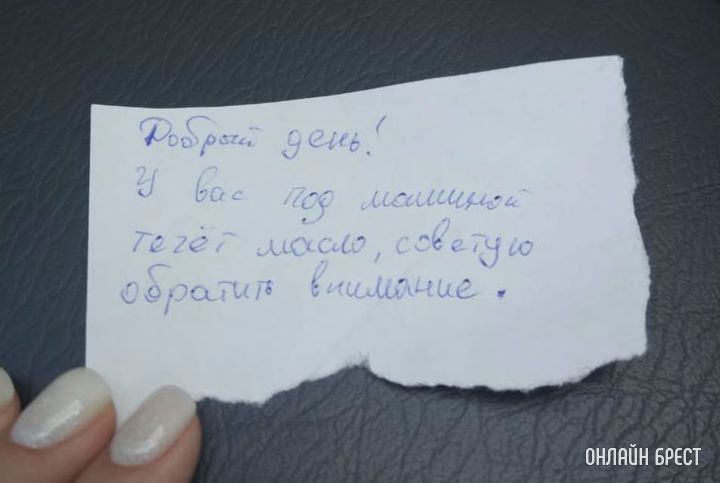 Добрый день!
У вас под машиной
течёт масло, советую
обратить внимание.
ОНЛАЙН БРЕСТ